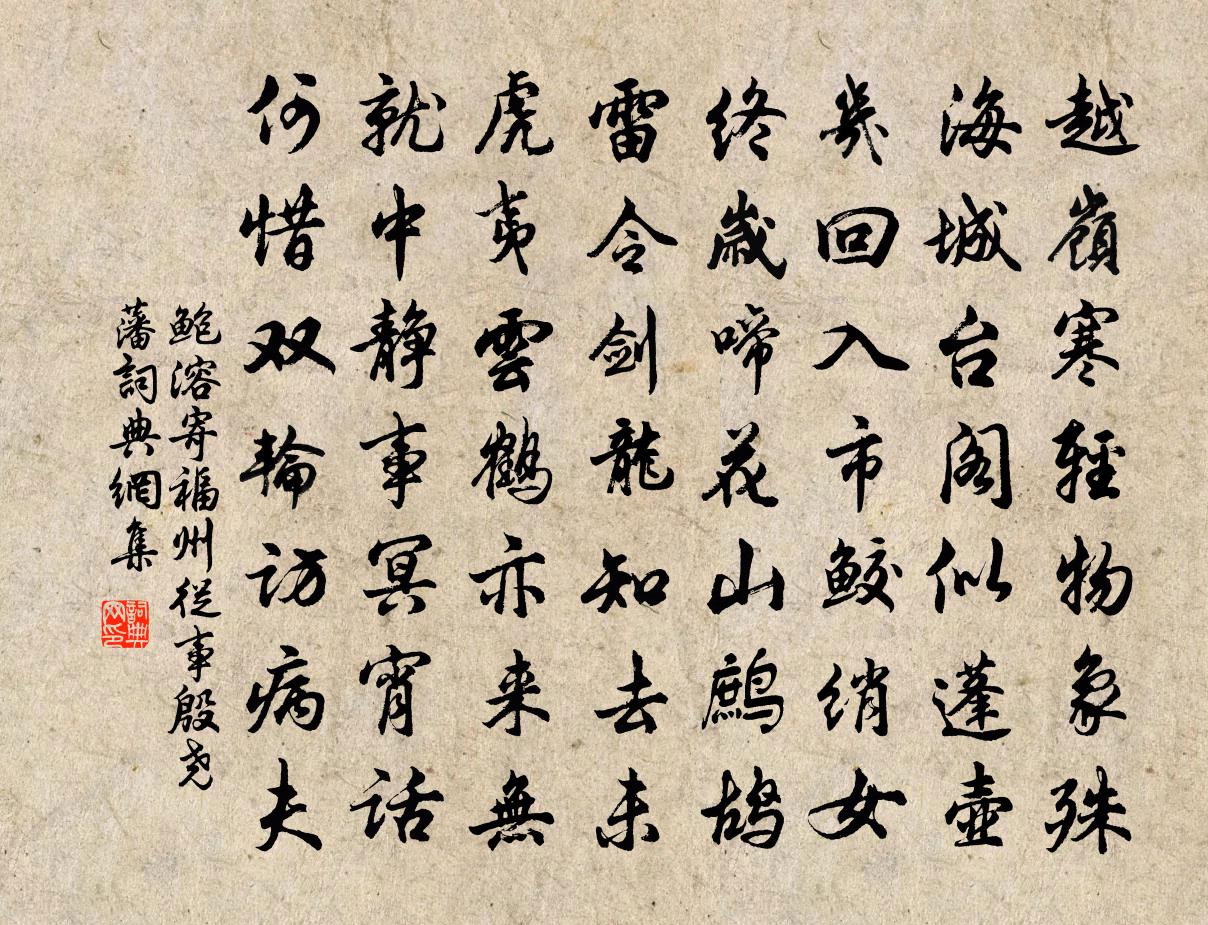 越嶺寒輕物象殊
海城台阁似蓬壺
幾回入市鮫绡女
終歲啼花山鷓鴣
雷令剑龍知去未
虎夷雲鶴亦来無
就中静事冥宵话
何惜双輪访病夫
鲍溶寄福州從事殷尧
藩詞典網集
詞典网印